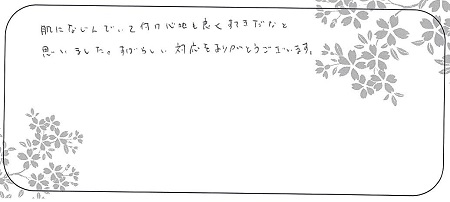 肌になじんでいて付け心地も良くすてきだなと
思いました。すばらしい対応をありがとうございます。